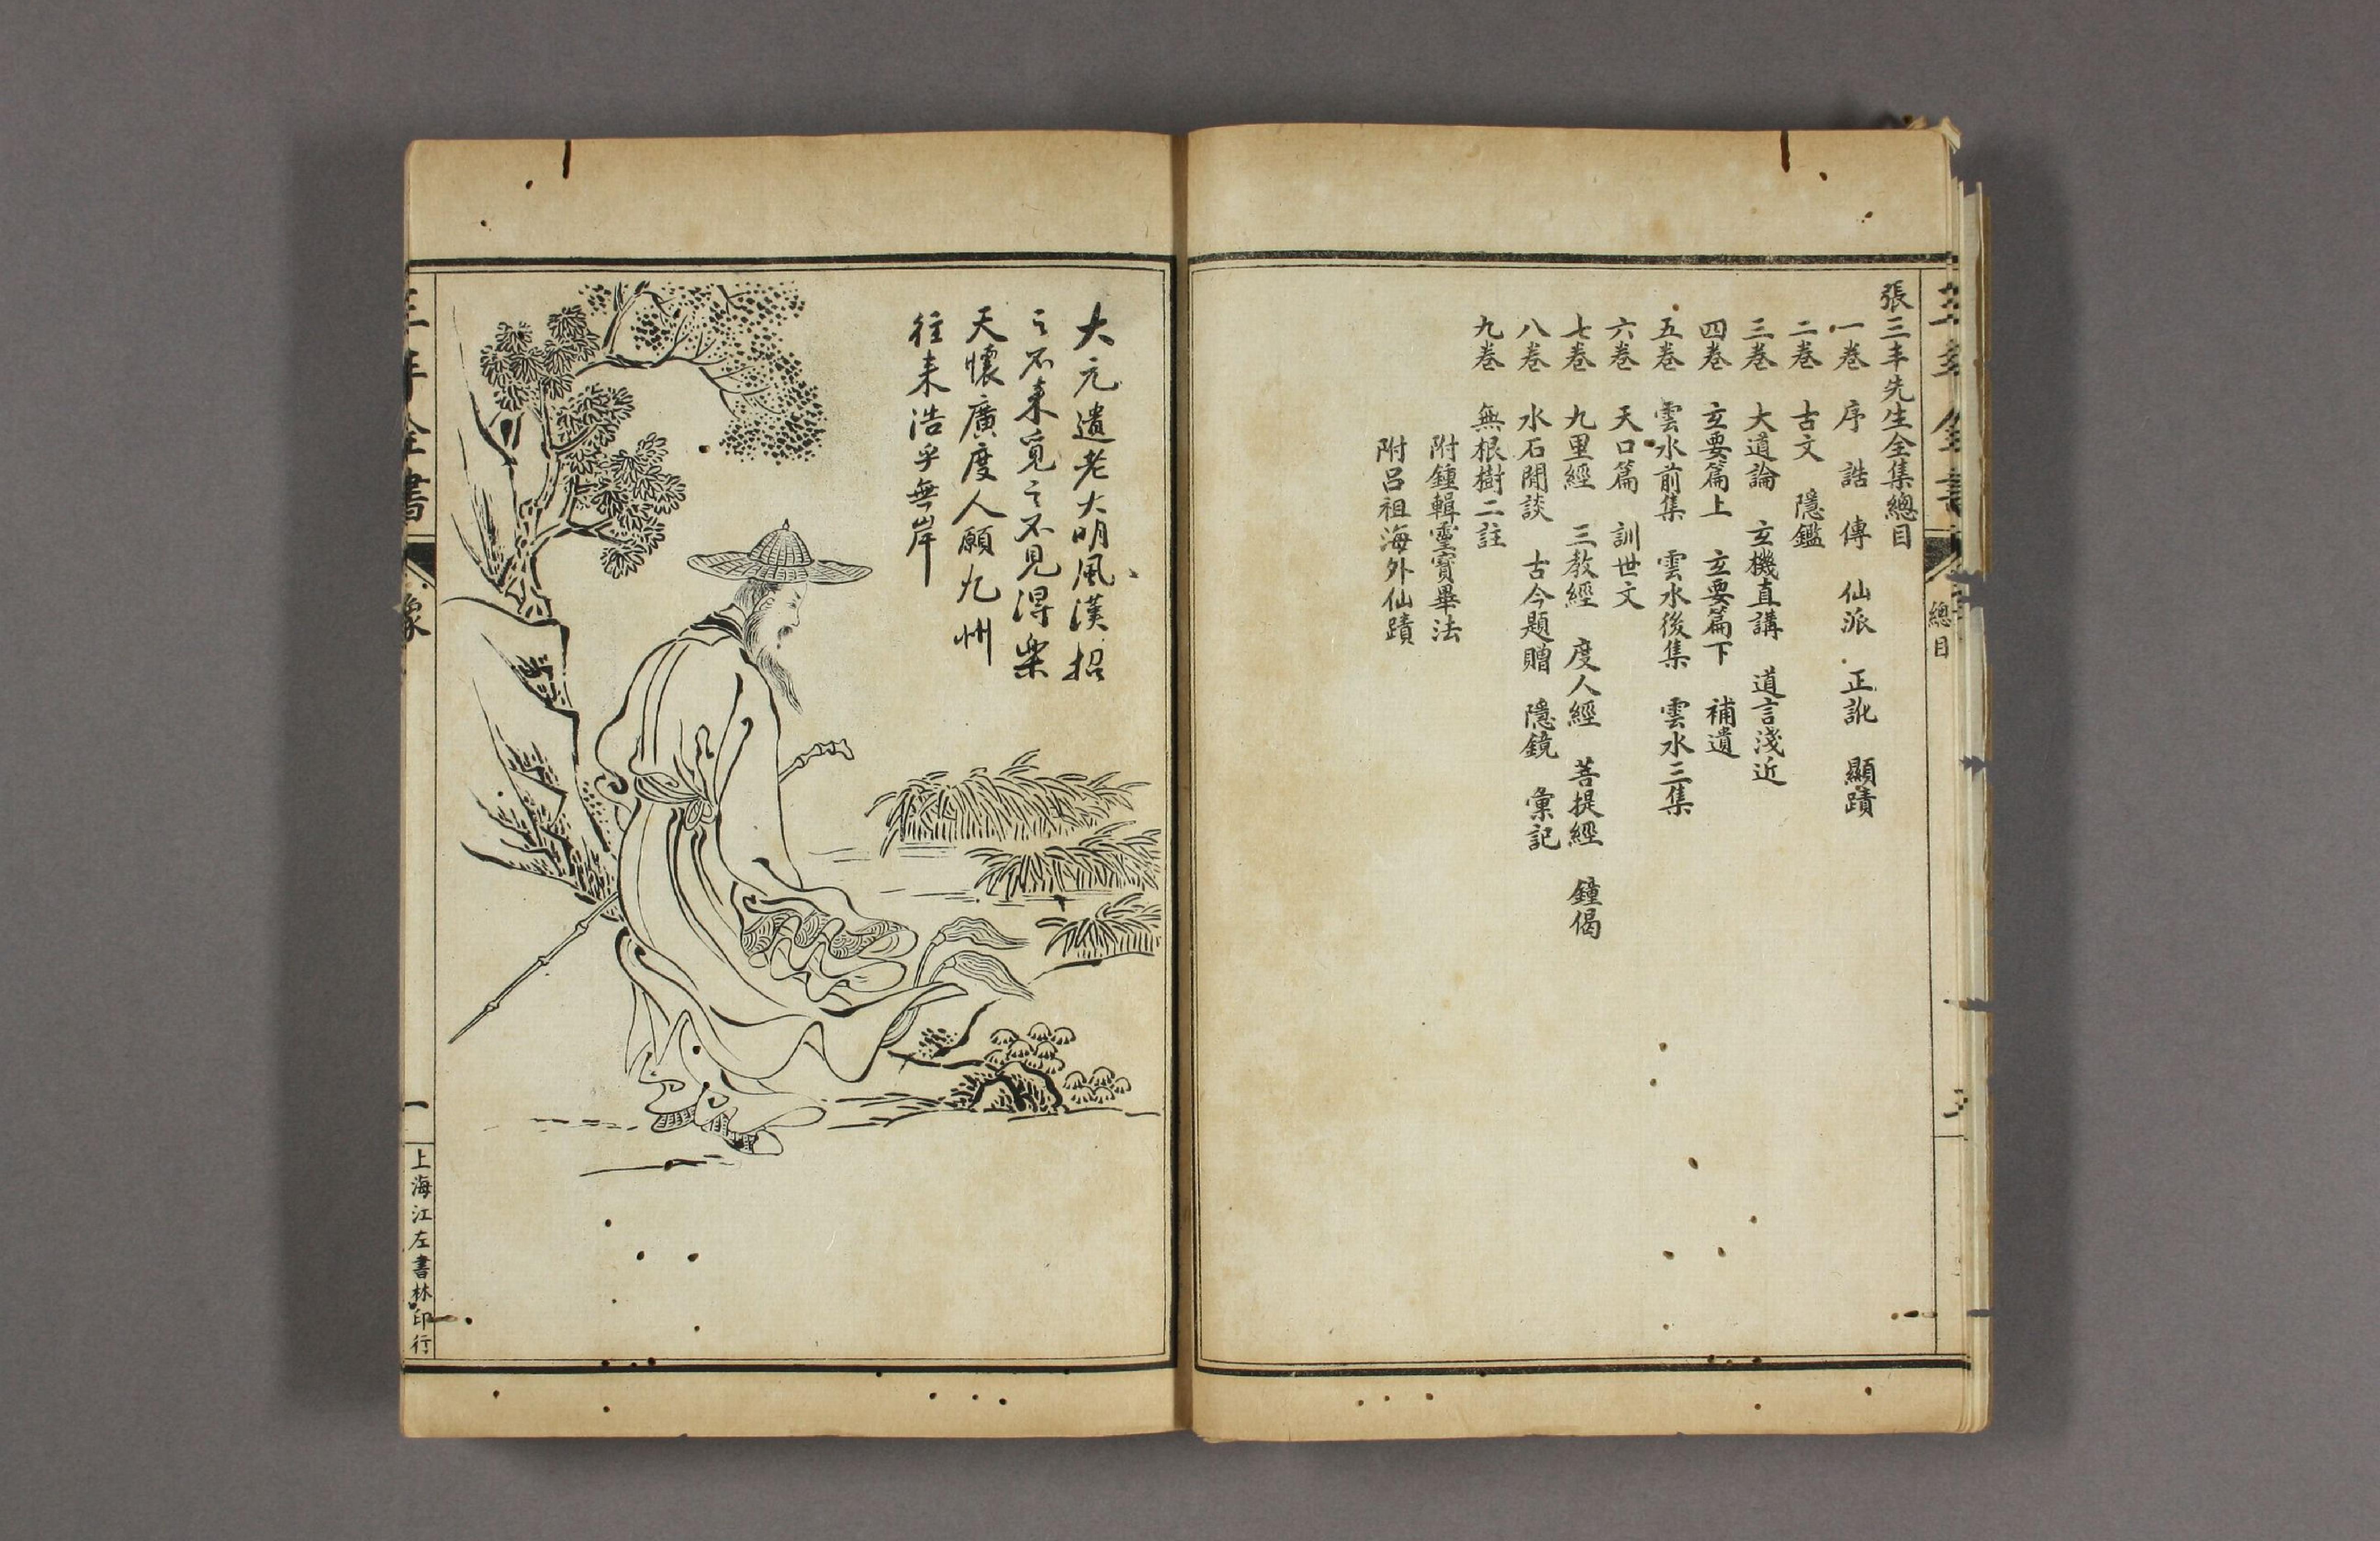 張三丰先生全集總目
一卷 序 誥 傳 仙派 正訛 顯蹟
二卷 古文 隱鑑
三卷 大道論 玄機直講 道言淺近
四卷 玄要篇上 玄要篇下 補遺
五卷 雲水前集 雲水後集 雲水三集
六卷 天口篇 訓世文
七卷 九皇經 三教經 度人經 菩提經 鐘偈
八卷 水石閒談 古今題贈 隱鏡 彙記
九卷 無根樹二註
附鍾輯靈寶畢法
附呂祖海外仙蹟
總目
大元遺老大明風漢招
之不來覓之不見得樂
天懷廣度人願九州
往來浩乎無岸
三丰全書
像
一
上海江左書林印行